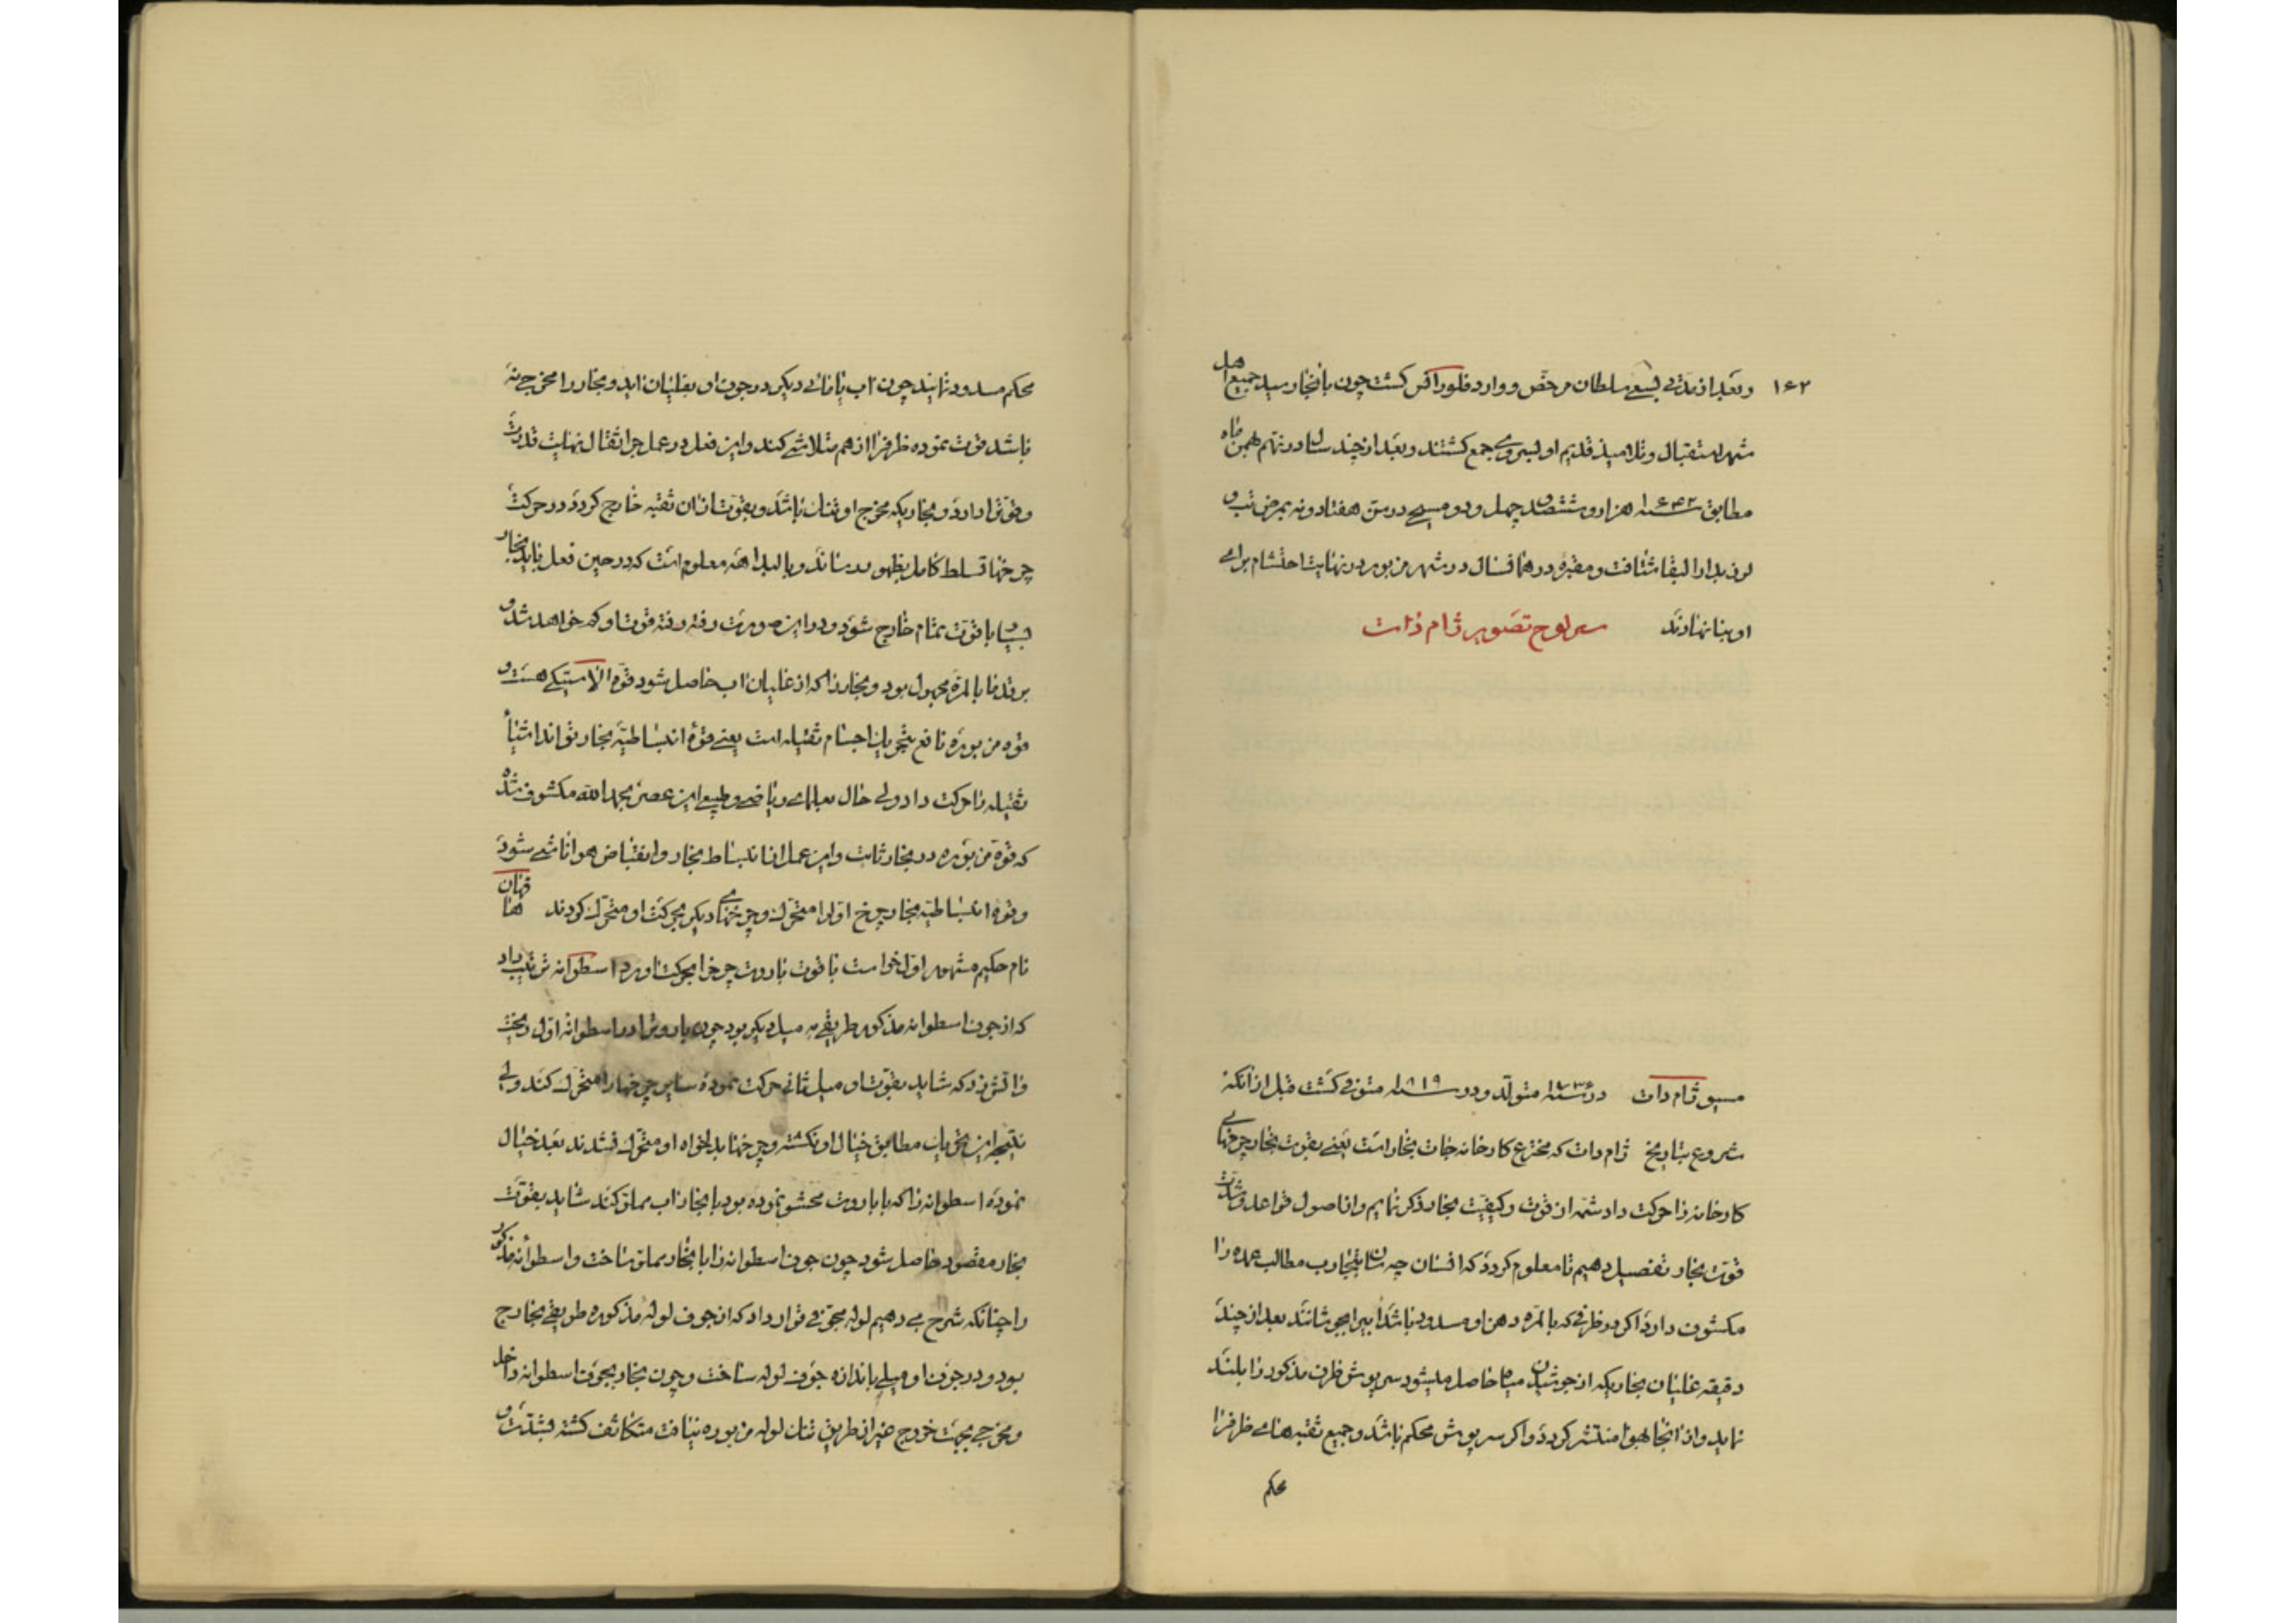 ۱۶۴۲ وبعد از مدتی بسعی سلطان مرخص و وارد فلورانس کشت چون بانجا رسید جمیع اهل
شهر استقبال و تلامیذ قدیم او بسر وی جمع کشتند و بعد از چند سال در نهم همین ماه
مطابق سنه ۱۶۴۲ هزار و ششصد چهل و دو مسیحی در سن هفتاد و نه بمرض تب و
لرز بدار البقا شتافت و مقبره در همان سال در شهر مزبور در نهایت احتشام برای
او بنا نهادند سرلوح تصویر ژام وات
مسیو ژام وات در سنه ۱۷۳۶ متولد و در سنه ۱۸۱۹ متوفی کشت قبل از انکه
شروع بتاریخ ژام وات که مخترع کارخانه جات بخار است یعنی بقوت بخار چرخهای
کارخانه را حرکت داد شمه از قوت و کیفیت بخار ذکر نمایم و از اصول قواعد و شدت
قوت بخار تفصیل دهیم تا معلوم کردد که انسان چه سان بتجارب مطالب عمده را
مکشوف دارد اکر در ظرفی که بالمره دهن او مسدود باشد اب را بجوشانند بعد از چند
دقیقه غلیان بخاریکه از جوشیدن میاه حاصل میشود سرپوش ظرف مذکور را بلند
نماید و از انجا بهوا منتشر کردد و اکر سرپوش محکم باشد و جمیع ثقبه های ظرف را
محکم
محکم مسدود نمایند چون اب یا مانعی دیکر در جوف او بغلیان اید و بخار را مخرجی نه
باشد قوت نموده ظرف را از هم متلاشی کند و این فعل در عمل جر اثقال نهایت قدرت
و قوت را دارد و بخاریکه مخرج او تنک باشد و بقوت از ان ثقبه خارج کردد در حرکت
چرخها تسلط کامل بظهور رساند و بالبداهه معلوم است که در حین فعل باید بخار
بسیار با قوت تمام خارج شود و در این صورت رفته رفته قوت او کم خواهد شد و
بر قدما بالمره مجهول بود و بخار را که از غلیان اب حاصل شود قوه الاستیکی هست و
قوه مزبوره نافع بتحریک اجسام ثقیله است یعنی قوه انبساطیه بخار تواند اشیاء
ثقیله را حرکت داد ولی حال بعلمای ریاضی و طبیعی این عصر بحمد الله مکشوف شده
که قوه مزبوره در بخار ثابت و این عمل از انبساط بخار و انقباض هوا ناشی شود
و قوه انبساطیه بخار چرخ اول را متحرک و چرخهای دیکر بحرکت او متحرک کردند
نام حکیم مشهور اول خواست با قوت باروت چرخ را بحرکت اورد اسطوانه ترتیب داد
که از جوف اسطوانه مذکور طریقی به میل دیکر بود چون باروت را در اسطوانه اول ریخت
و اتش زد که شاید بقوت او میل ثانی حرکت نموده سایر چرخها را متحرک کند ولی
نتیجه این تجربات مطابق خیال او نکشته و چرخها بدلخواه او متحرک نشدند بعد خیال
نموده اسطوانه را که با باروت محشو نموده بود با بخار اب مملو کند شاید بقوت
بخار مقصود حاصل شود چون جوف اسطوانه را با بخار مملو ساخت و اسطوانه مذکور
را چنانکه شرح می دهیم لوله مجوفی قرار داد که از جوف لوله مذکوره طریقی بخارج
بود و در جوف او میلی باندازه جوف لوله ساخت و چون بخار بجوف اسطوانه داخل
و مخرجی بجهت خروج غیر از طریق تنک لوله مزبوره نیافت متکاثف کشته بشدت و